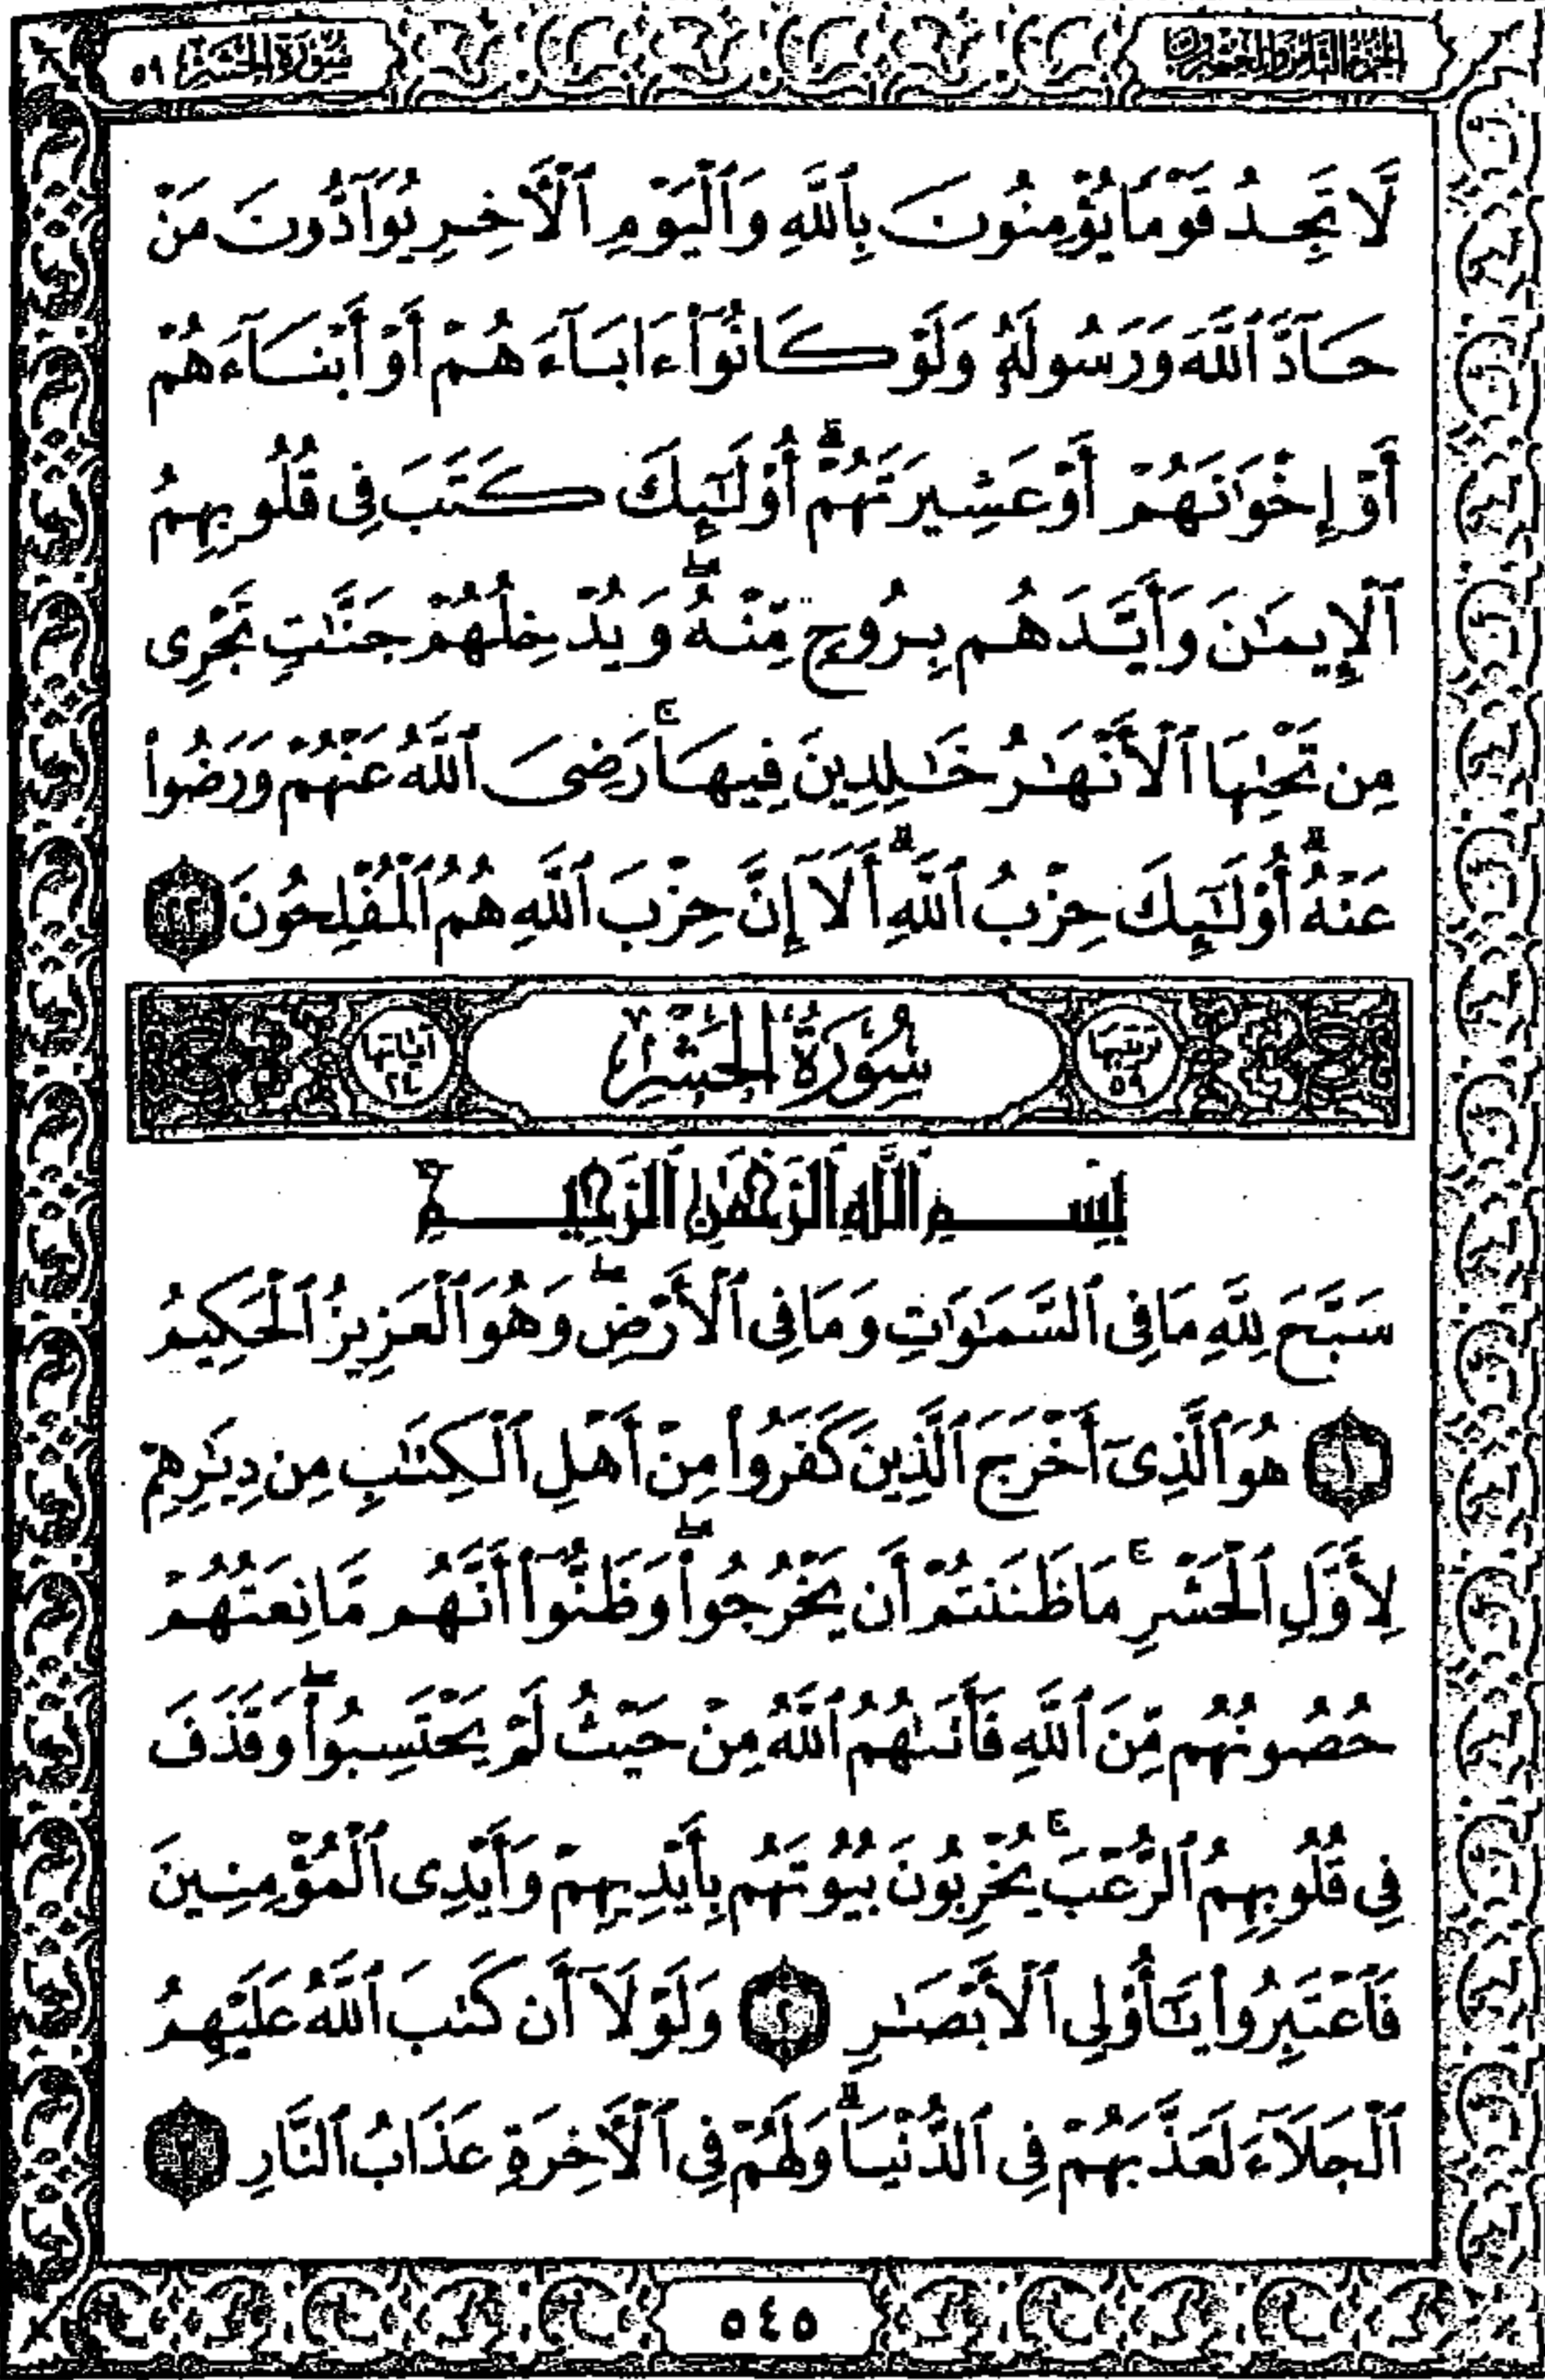 الجزء الثامن والعشرون
سورة الحشر ٥٩
لَّا تَجِدُ قَوْمًا يُؤْمِنُونَ بِٱللَّهِ وَٱلْيَوْمِ ٱلْأَخِرِ يُوَآدُّونَ مَنْ
حَآدَّ ٱللَّهَ وَرَسُولَهُۥ وَلَوْ كَانُوٓا۟ ءَابَآءَهُمْ أَوْ أَبْنَآءَهُمْ
أَوْ إِخْوَٰنَهُمْ أَوْ عَشِيرَتَهُمْ ۚ أُو۟لَـٰٓئِكَ كَتَبَ فِى قُلُوبِهِمُ
ٱلْإِيمَـٰنَ وَأَيَّدَهُم بِرُوحٍ مِّنْهُ ۖ وَيُدْخِلُهُمْ جَنَّـٰتٍ تَجْرِى
مِن تَحْتِهَا ٱلْأَنْهَـٰرُ خَـٰلِدِينَ فِيهَا ۚ رَضِىَ ٱللَّهُ عَنْهُمْ وَرَضُوا۟
عَنْهُ ۚ أُو۟لَـٰٓئِكَ حِزْبُ ٱللَّهِ ۚ أَلَآ إِنَّ حِزْبَ ٱللَّهِ هُمُ ٱلْمُفْلِحُونَ ٢٢
ترتيبها ٥٩ سُورَةُ الحَشْرِ آياتها ٢٤
بِسْمِ ٱللَّهِ ٱلرَّحْمَـٰنِ ٱلرَّحِيمِ
سَبَّحَ لِلَّهِ مَا فِى ٱلسَّمَـٰوَٰتِ وَمَا فِى ٱلْأَرْضِ ۖ وَهُوَ ٱلْعَزِيزُ ٱلْحَكِيمُ
١ هُوَ ٱلَّذِىٓ أَخْرَجَ ٱلَّذِينَ كَفَرُوا۟ مِنْ أَهْلِ ٱلْكِتَـٰبِ مِن دِيَـٰرِهِمْ
لِأَوَّلِ ٱلْحَشْرِ ۚ مَا ظَنَنتُمْ أَن يَخْرُجُوا۟ ۖ وَظَنُّوٓا۟ أَنَّهُم مَّانِعَتُهُمْ
حُصُونُهُم مِّنَ ٱللَّهِ فَأَتَىٰهُمُ ٱللَّهُ مِنْ حَيْثُ لَمْ يَحْتَسِبُوا۟ ۖ وَقَذَفَ
فِى قُلُوبِهِمُ ٱلرُّعْبَ ۚ يُخْرِبُونَ بُيُوتَهُم بِأَيْدِيهِمْ وَأَيْدِى ٱلْمُؤْمِنِينَ
فَٱعْتَبِرُوا۟ يَـٰٓأُو۟لِى ٱلْأَبْصَـٰرِ ٢ وَلَوْلَآ أَن كَتَبَ ٱللَّهُ عَلَيْهِمُ
ٱلْجَلَآءَ لَعَذَّبَهُمْ فِى ٱلدُّنْيَا ۖ وَلَهُمْ فِى ٱلْأَخِرَةِ عَذَابُ ٱلنَّارِ ٣
٥٤٥